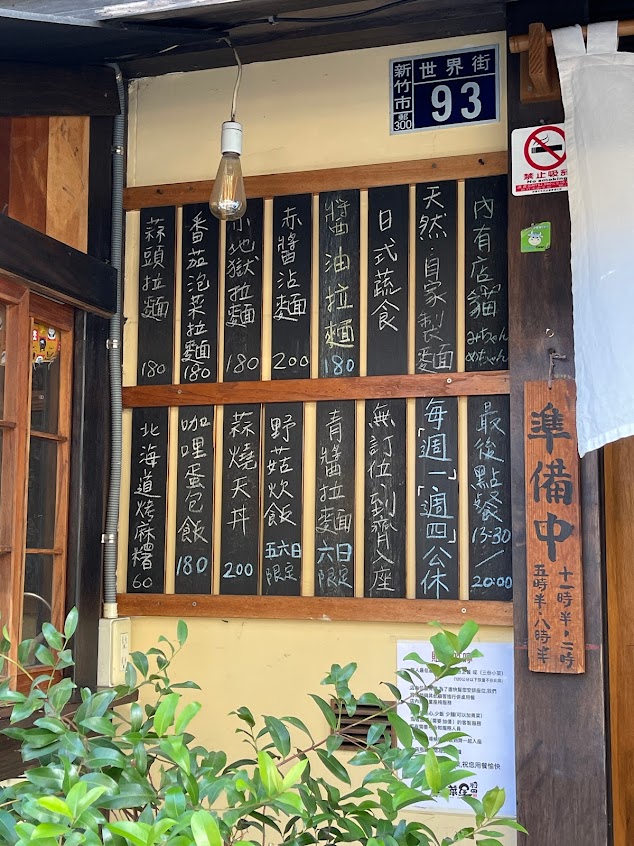 新竹市
郵300
世界街
93
禁止吸菸
No smoking
內有店貓 みちゃん めちゃん
天然・自家製麵
日式蔬食
醬油拉麵 180
赤醬沾麵 200
小地獄拉麵 180
番茄泡菜拉麵 180
蒜頭拉麵 180
最後點餐 13:30/20:00
每「週一」、「週四」公休
無訂位、到齊入座
青醬拉麵 六日限定
野菇炊飯 五六日限定
蒜燒天丼 200
咖哩蛋包飯 180
北海道烤麻糬 60
準備中
十一時半・二時
五時半・八時半
祝您用餐愉快